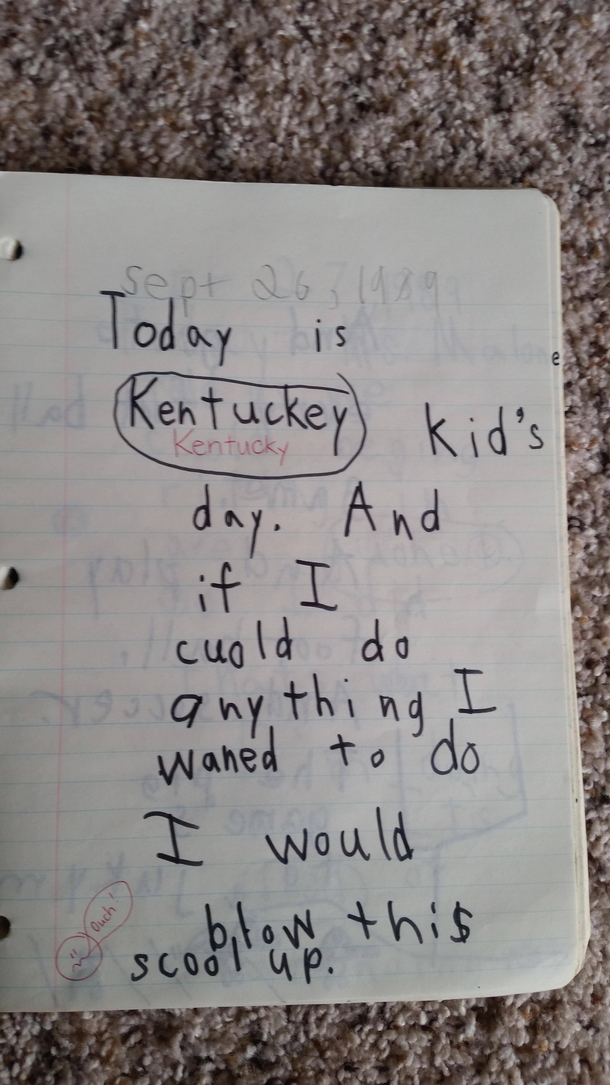 sept 26, 1989
Today is
Kentuckey kid's
Kentucky
day. And
if I
cuold do
anything I
waned to do
I would
blow this
scool up.
ouch!